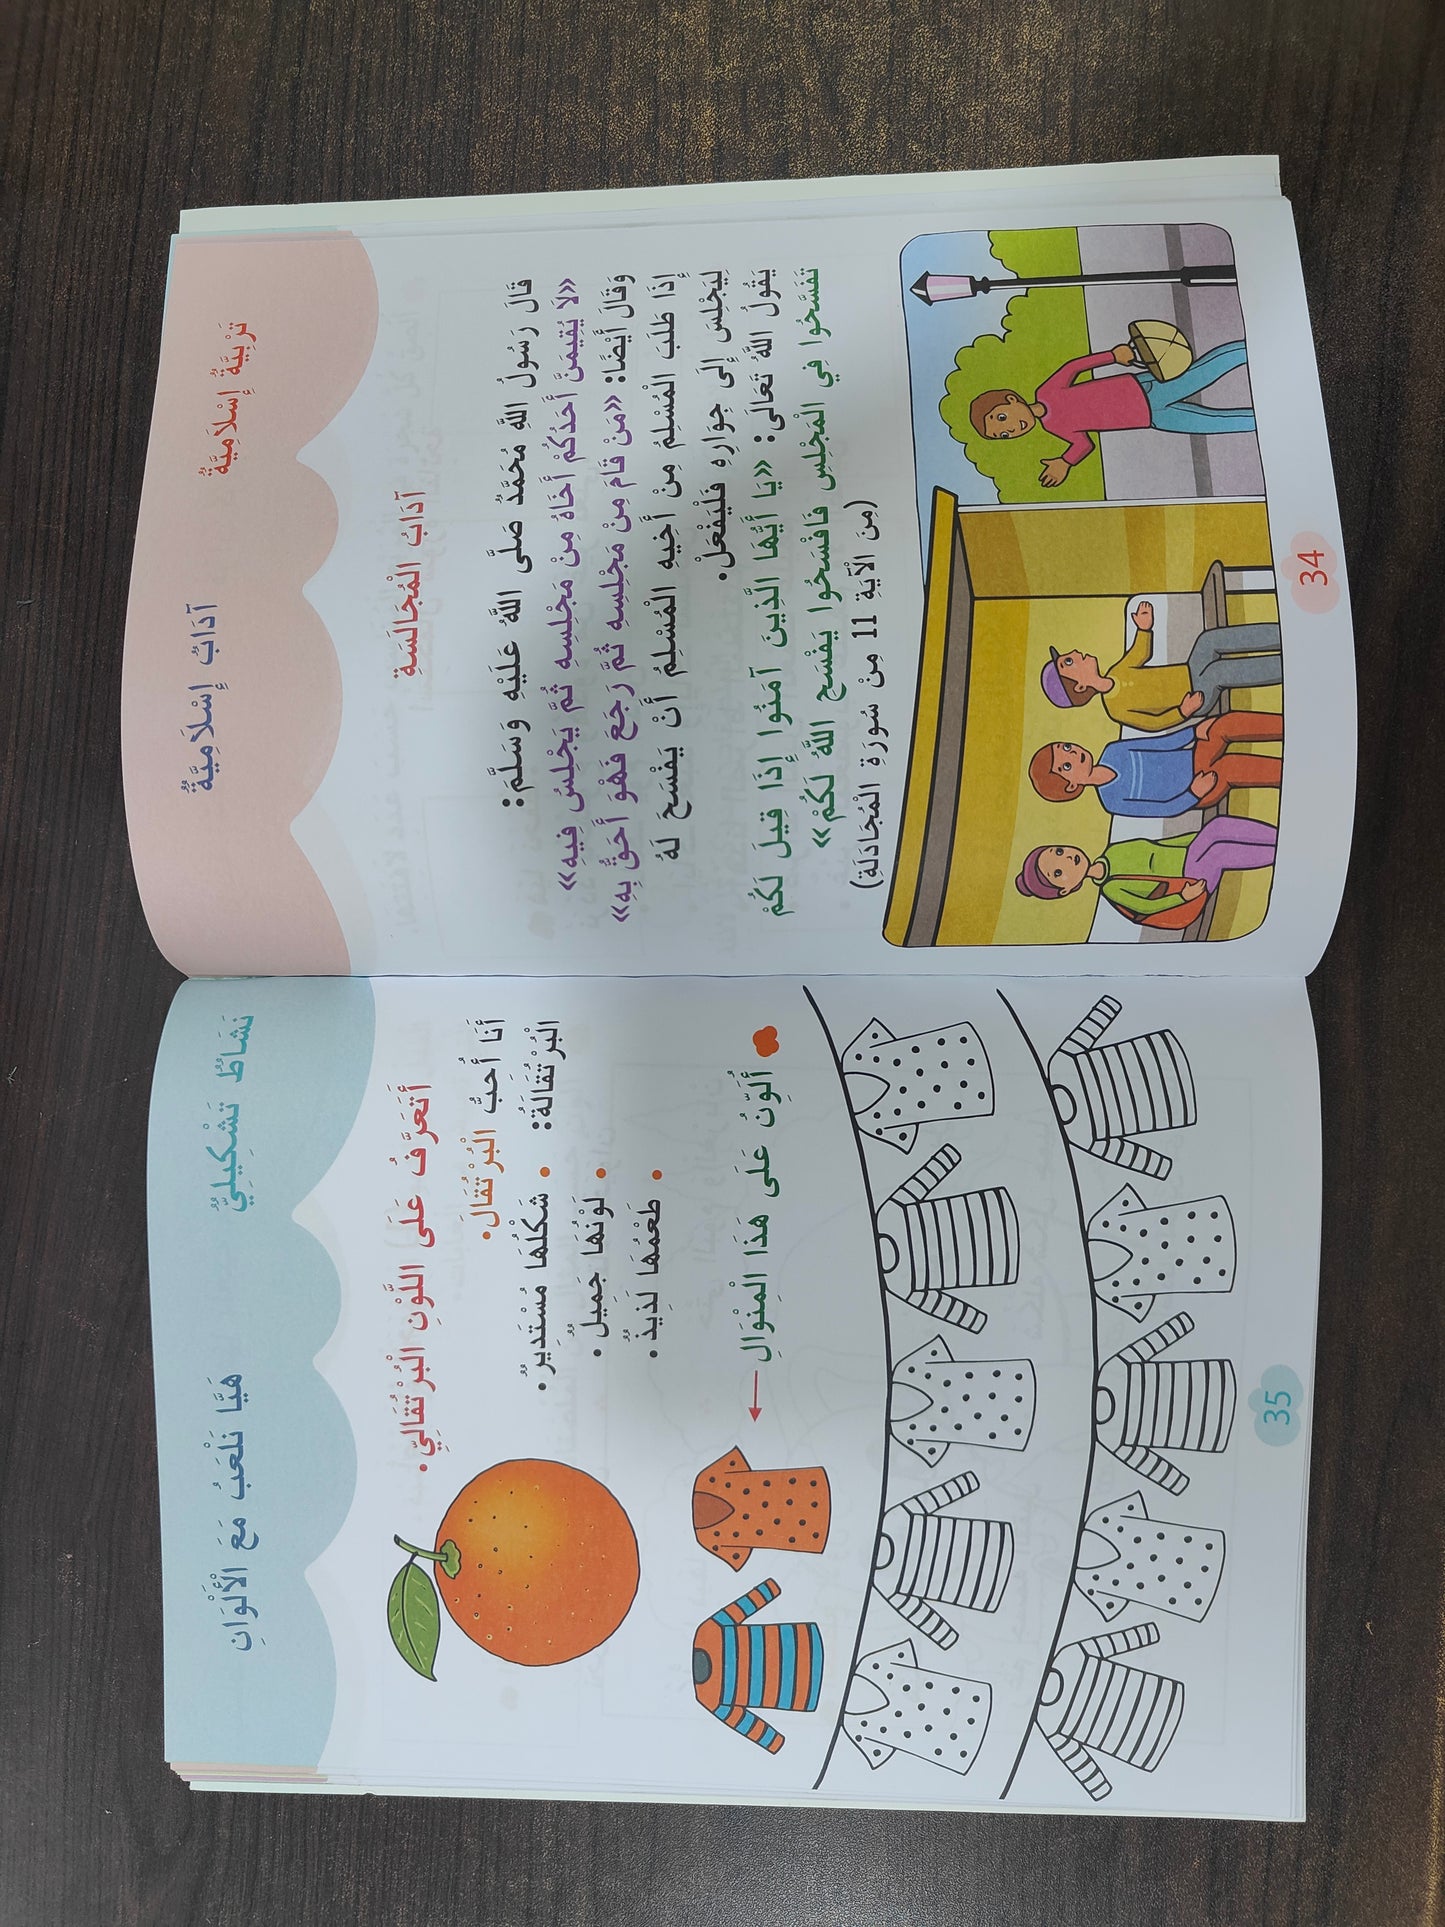 تَرْبِيَّةٌ إِسْلَامِيَّةٌ
آدَابٌ إِسْلَامِيَّةٌ
آدَابُ الْمُجَالَسَةِ
قَالَ رَسُولُ اللَّهِ مُحَمَّدٌ صَلَّى اللَّهُ عَلَيْهِ وَسَلَّمَ:
«لَا يُقِيمَنَّ أَحَدُكُمْ أَخَاهُ مِنْ مَجْلِسِهِ ثُمَّ يَجْلِسُ فِيهِ»
وَقَالَ أَيْضًا: «مَنْ قَامَ مِنْ مَجْلِسِهِ ثُمَّ رَجَعَ فَهْوَ أَحَقُّ بِهِ»
إِذَا طَلَبَ الْمُسْلِمُ مِنْ أَخِيهِ الْمُسْلِمُ أَنْ يَفْسَحَ لَهُ
لِيَجْلِسَ إِلَى جِوَارِهِ فَلْيَفْعَلْ.
يَقُولُ اللَّهُ تَعَالَى: «يَا أَيُّهَا الَّذِينَ آمَنُوا إِذَا قِيلَ لَكُمْ
تَفَسَّحُوا فِي الْمَجْلِسِ فَافْسَحُوا يَفْسَحِ اللَّهُ لَكُمْ»
(مِنَ الْآيَةِ 11 مِنْ سُورَةِ الْمُجَادَلَةِ)
34
نَشَاطٌ تَشْكِيلِيٌّ
هَيَّا نَلْعَبُ مَعَ الْأَلْوَانِ
أَتَعَرَّفُ عَلَى اللَّوْنِ الْبُرْتُقَالِيِّ.
أَنَا أُحِبُّ الْبُرْتُقَالَ.
الْبُرْتُقَالَةُ:
• شَكْلُهَا مُسْتَدِيرٌ.
• لَوْنُهَا جَمِيلٌ.
• طَعْمُهَا لَذِيذٌ.
أُلَوِّنُ عَلَى هَذَا الْمِنْوَالِ
35